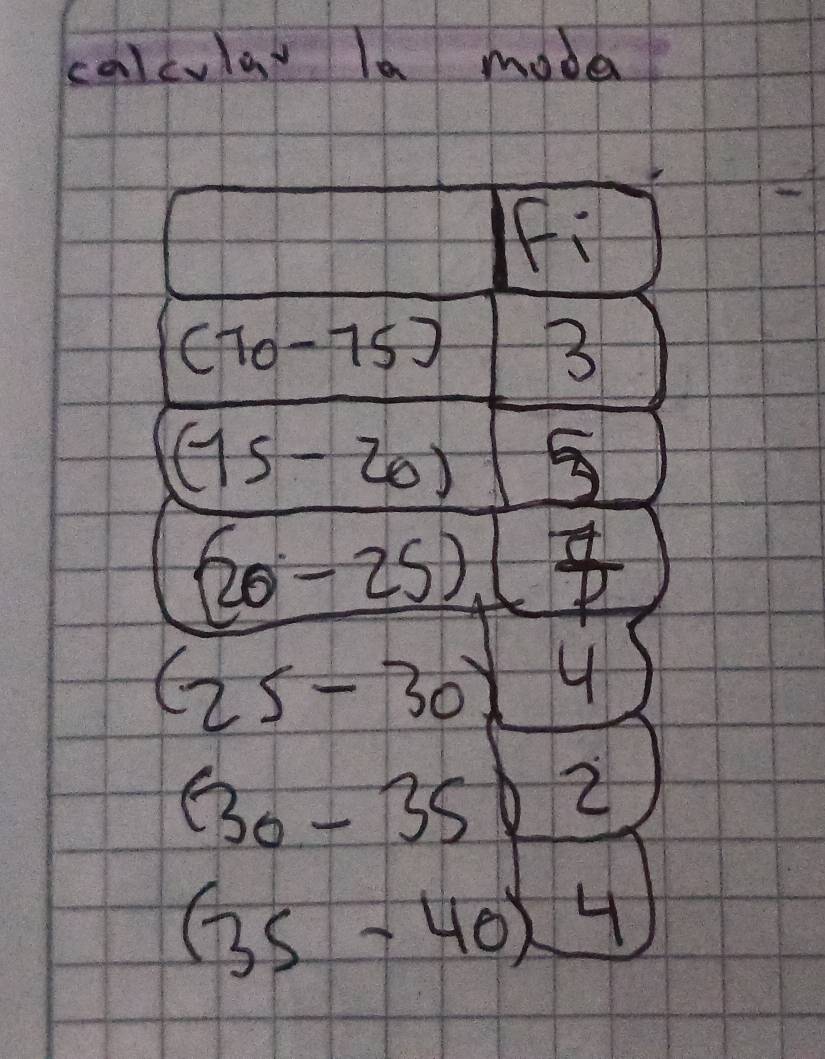 calcular la moda
Fi
(10-15) 3
(15-20) 5
(20-25) 7
(25-30) 4
(30-35) 2
(35-40) 4